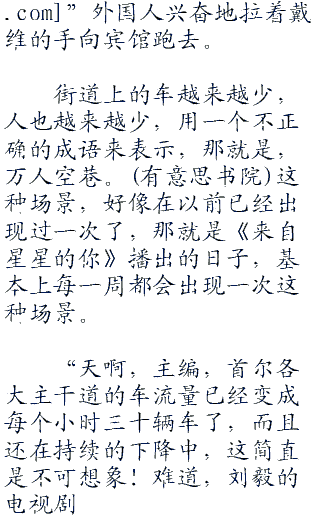 .com]”外国人兴奋地拉着戴
维的手向宾馆跑去。
街道上的车越来越少，
人也越来越少，用一个不正
确的成语来表示，那就是，
万人空巷。(有意思书院)这
种场景，好像在以前已经出
现过一次了，那就是《来自
星星的你》播出的日子，基
本上每一周都会出现一次这
种场景。
“天啊，主编，首尔各
大主干道的车流量已经变成
每个小时三十辆车了，而且
还在持续的下降中，这简直
是不可想象！难道，刘毅的
电视剧